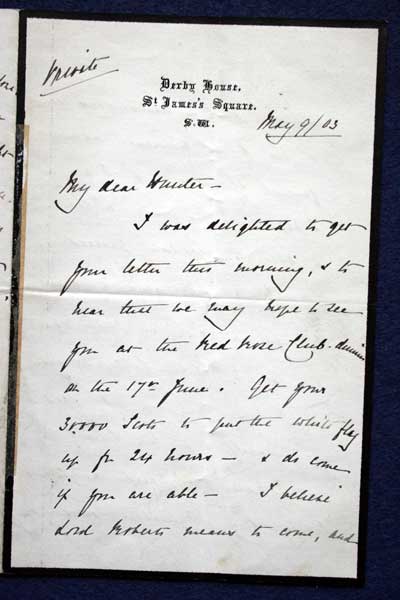 Private
Derby House,
St James's Square.
S.W.
May 9/03
My dear Hunter -
I was delighted to get
your letter this morning, & to
hear that we may hope to see
you at the Red Rose Club dinner
on the 17th June. Get your
30,000 Scots to put the white flag
up for 24 hours - & do come
if you are able - I believe
Lord Roberts means to come, and